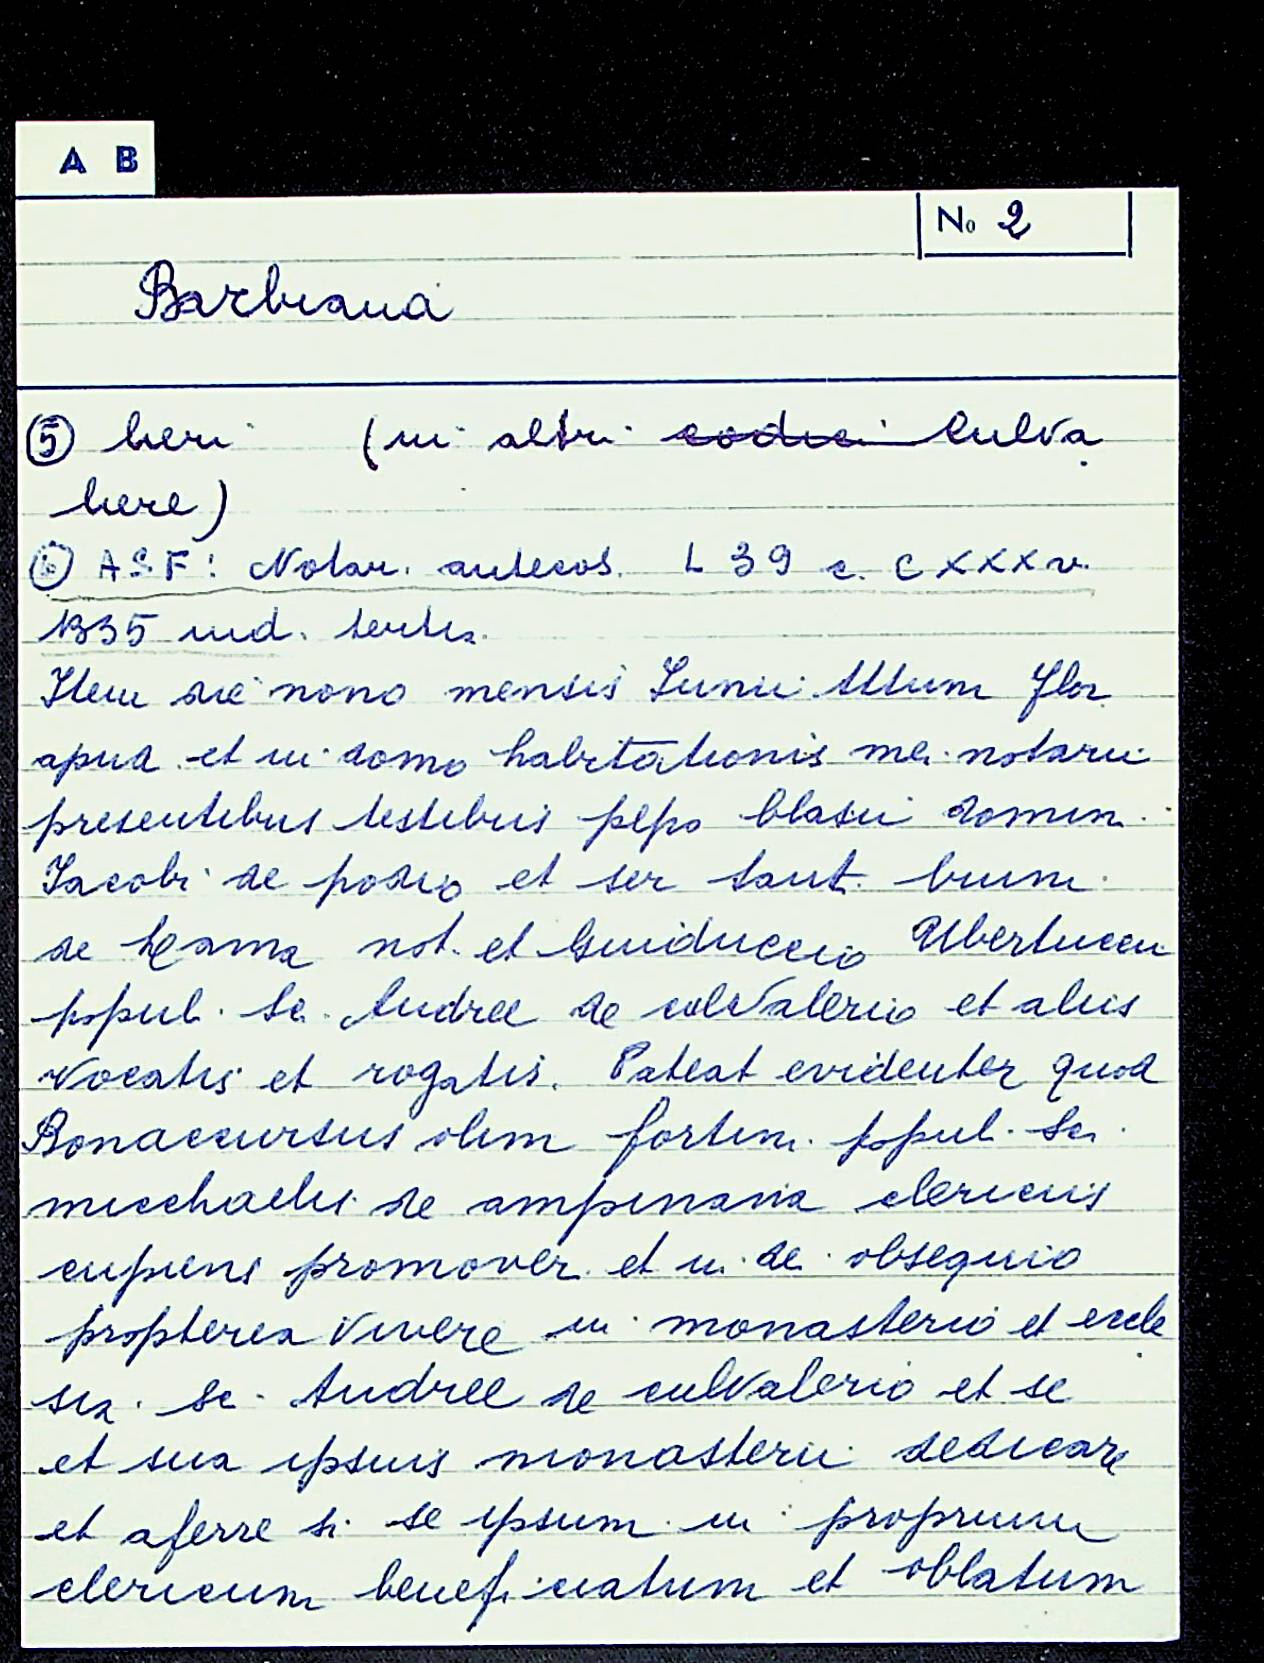 A B
No 2
Barbiana
⑤ heri (in altri codici Culva
here)
⑥ A.S.F: Notar. antecos. L 39 c. CXXXv.
1335 ind. tertia.
Item die nono mensis Iunii Actum Flor.
apud et in domo habitationis mei notarii
presentibus testibus pepo blasii domin.
Iacobi de podio et ser sant. bruni.
de not. et Guiduccio Ubertuccii
popul. Sc. Andree de colvalerio et aliis
vocatis et rogatis. Pateat evidenter quod
Bonaccursus olim fortini. popul. Sci.
micchaelis de ampinana clericus
cupiens promover. et in. dei. obsequio
propterea vivere in monasterio et eccle
sia. Sc. Andree de culvalerio et se
et sua ipsius monasterii dedicare
et aferre si. se ipsum in proprium
clericum beneficiatum et oblatum